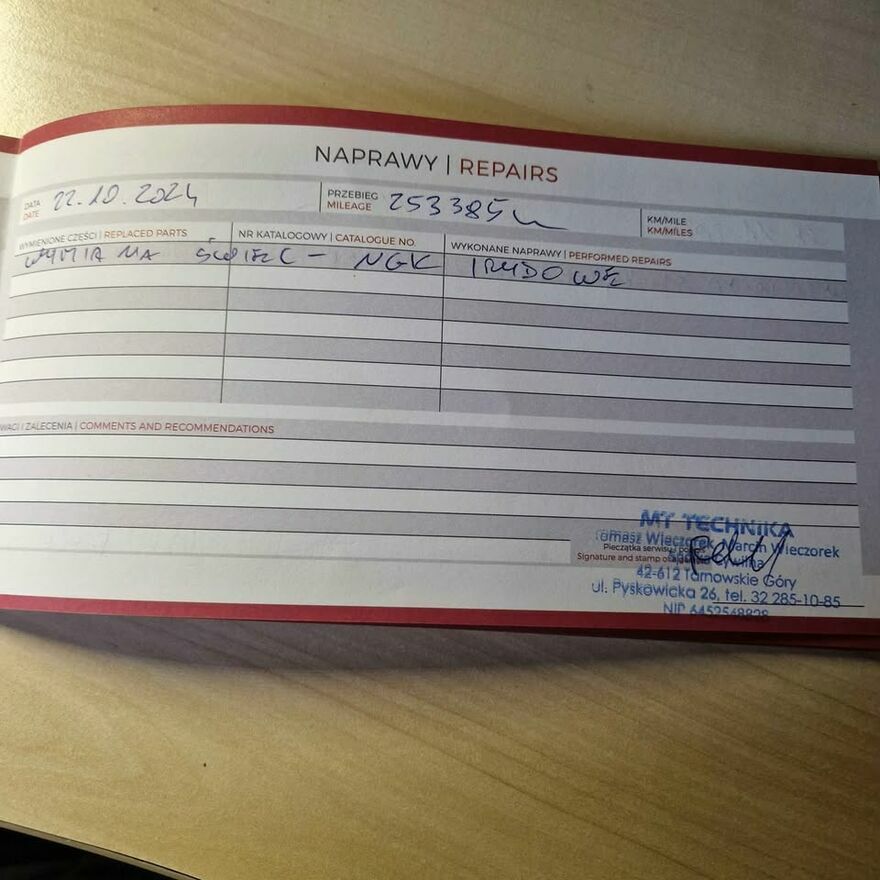 NAPRAWY | REPAIRS
DATA 22.10.2024 PRZEBIEG 253385
DATE MILEAGE KM/MILE
KM/MILES
WYMIENIONE CZĘŚCI | REPLACED PARTS NR KATALOGOWY | CATALOGUE NO. WYKONANE NAPRAWY | PERFORMED REPAIRS
WYMIANA ŚWIEC - NGK IRYDOWE
WAGI I ZALECENIA | COMMENTS AND RECOMMENDATIONS
MT TECHNIKA
Tomasz Wieczorek, Marcin Wieczorek
Pieczątka serwisu
Signature and stamp
42-612 Tarnowskie Góry
ul. Pyskowicka 26, tel. 32 285-10-85
NIP